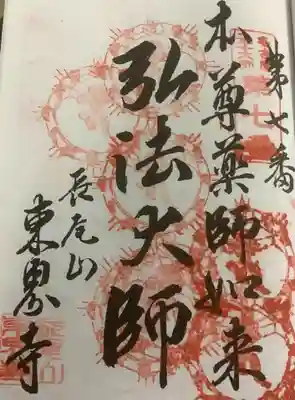 第七番
本尊薬師如来
弘法大師
長尾山
東恩寺